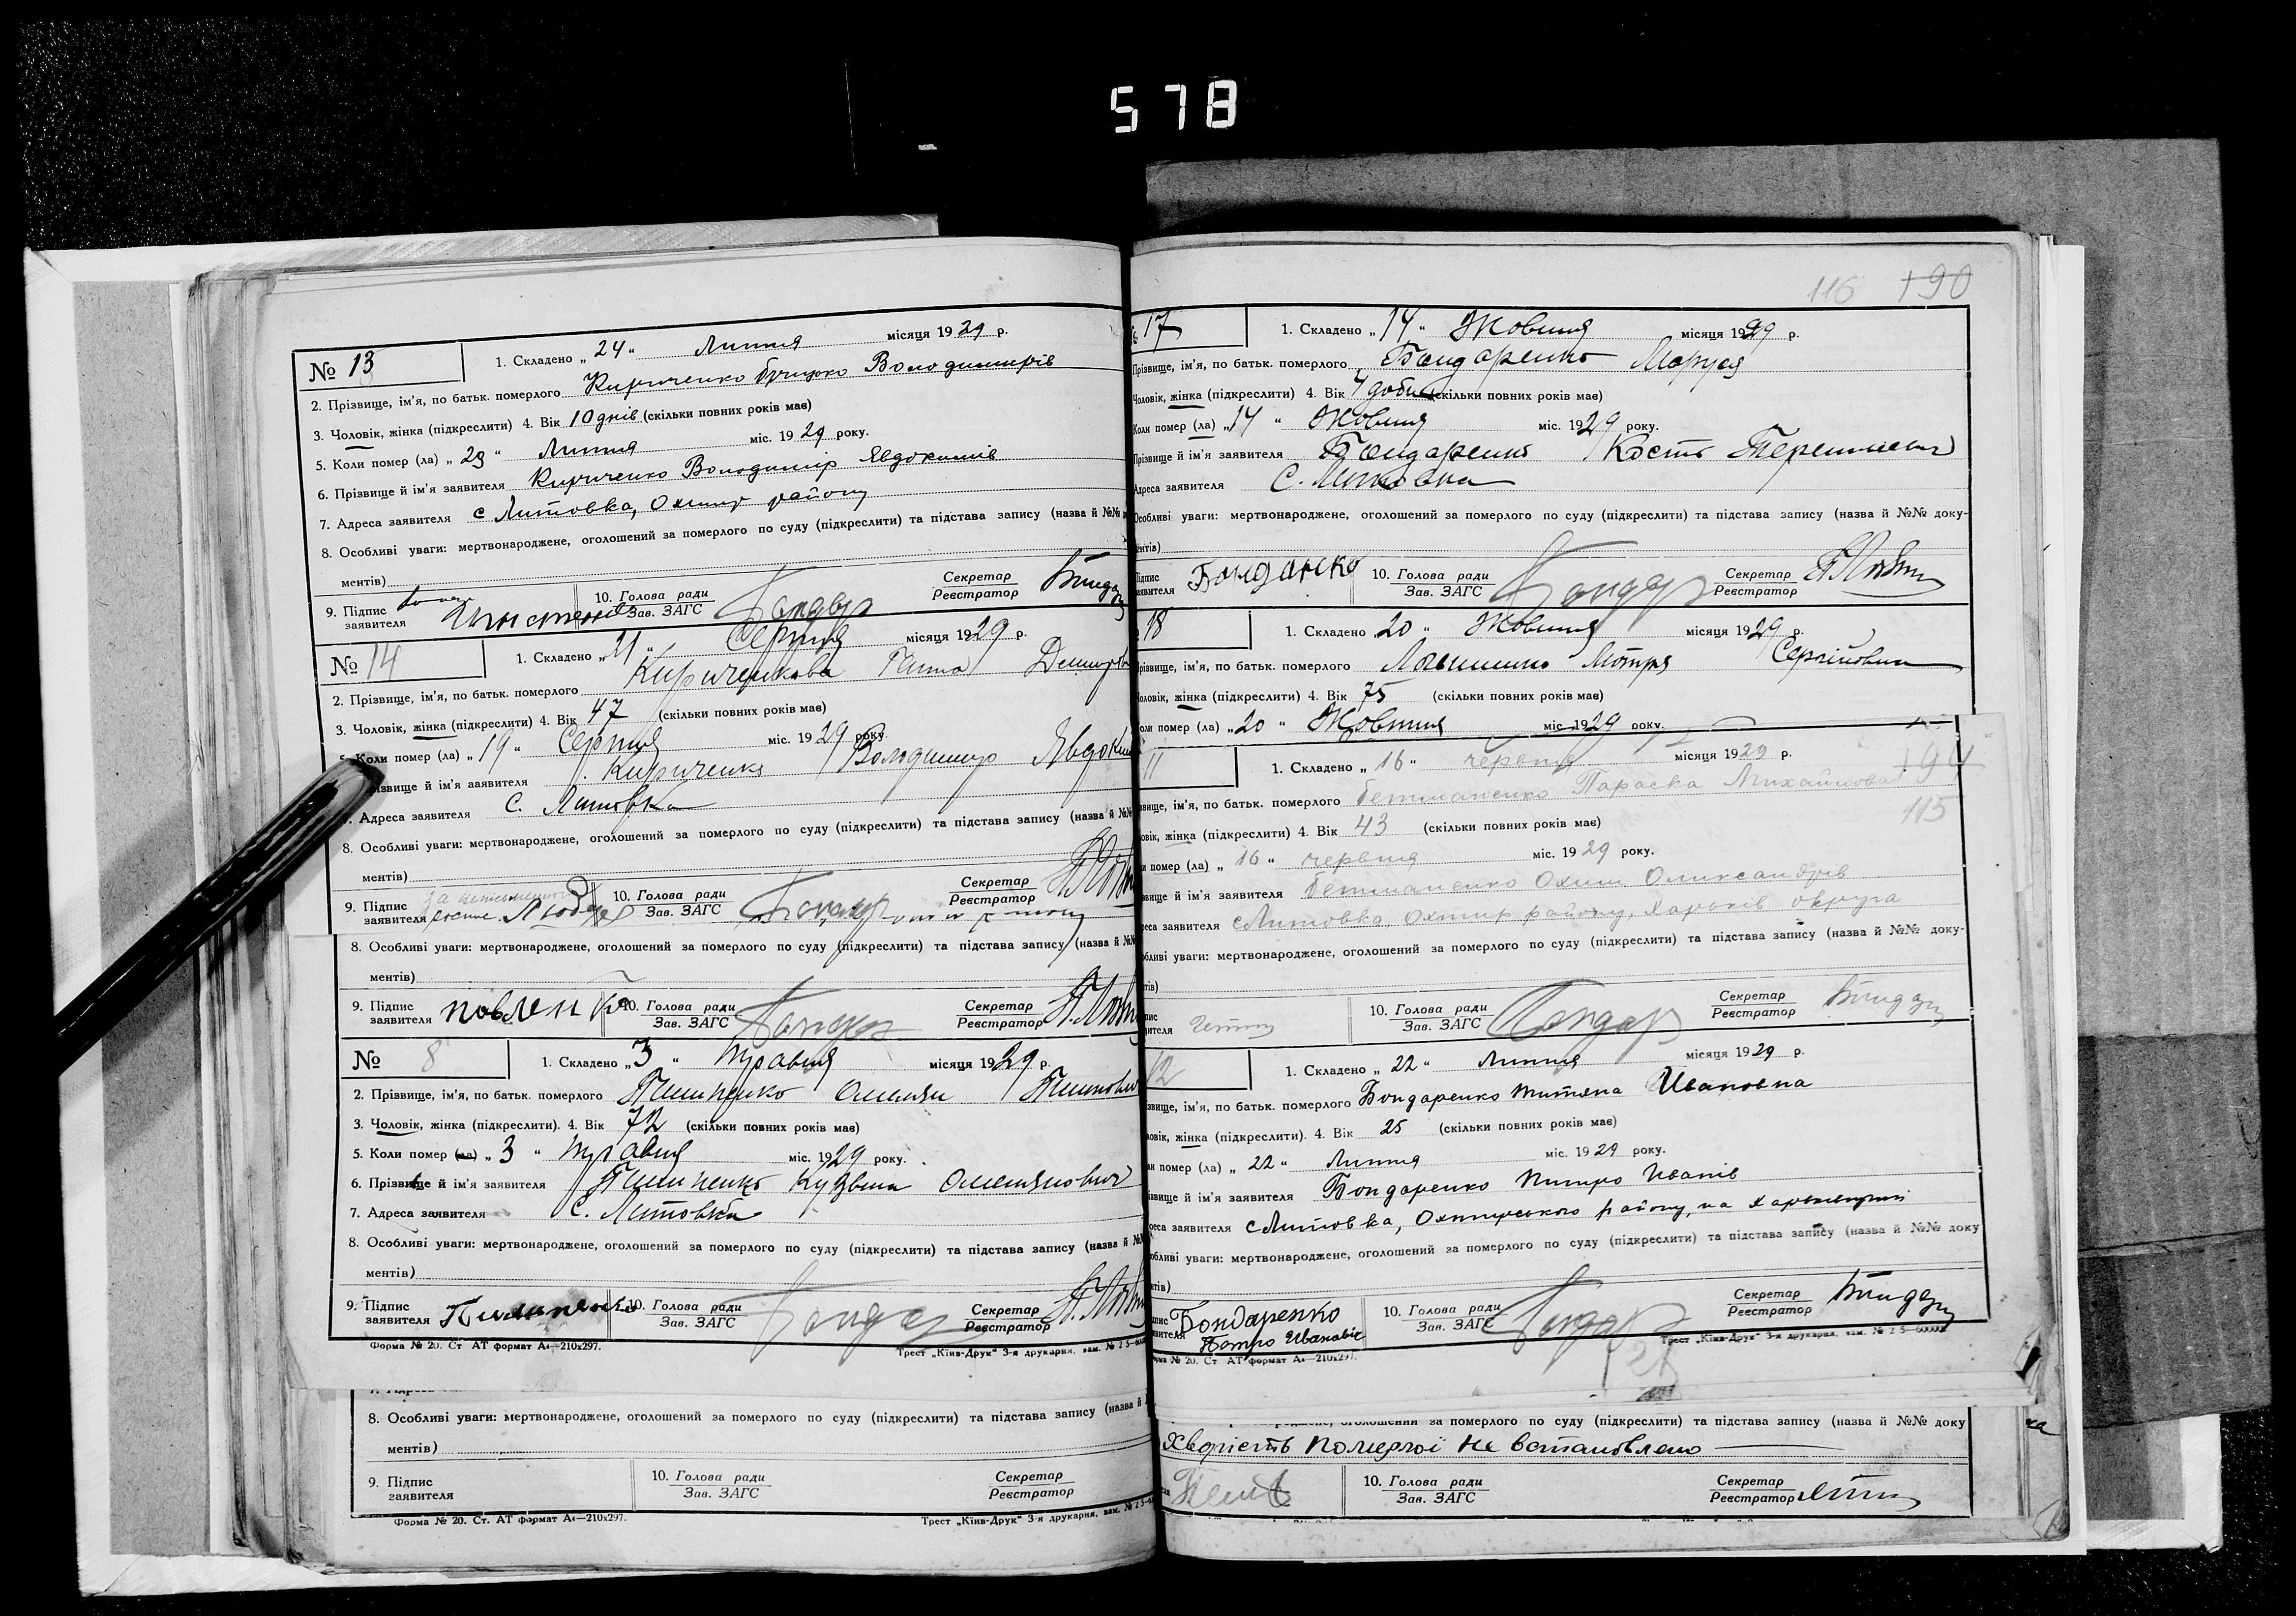 578
№ 13
1. Складено „ 24 “ Липня місяця 1929 р.
2. Прізвище, ім'я, по батьк. померлого Кириченко Володимирів
3. Чоловік, жінка (підкреслити) 4. Вік 10 днів (скільки повних років має)
5. Коли помер (ла) „ 23 “ Липня міс. 1929 року.
6. Прізвище й ім'я заявителя Кириченко Володимір Явдокимів
7. Адреса заявителя с Литовка, Охтир району
8. Особливі уваги: мертвонароджене, оголошений за померлого по суду (підкреслити) та підстава запису (назва й №№
ментів)
9. Підпис заявителя 10. Голова ради Зав. ЗАГС Бондар Секретар Реєстратор
№ 14
1. Складено „ 21 “ Серпня місяця 1929 р.
2. Прізвище, ім'я, по батьк. померлого Кириченкова
3. Чоловік, жінка (підкреслити) 4. Вік 47 (скільки повних років має)
Коли помер (ла) „ 19 “ Серпня міс. 1929 року
звище й ім'я заявителя Кириченко Володимир Явдоким
Адреса заявителя с. Литовка
8. Особливі уваги: мертвонароджене, оголошений за померлого по суду (підкреслити) та підстава запису (назва й №№
ментів)
9. Підпис заявителя 10. Голова ради Зав. ЗАГС Бондар Секретар Реєстратор
8. Особливі уваги: мертвонароджене, оголошений за померлого по суду (підкреслити) та підстава запису (назва й №№
ментів)
9. Підпис заявителя Повленко 10. Голова ради Зав. ЗАГС Бондар Секретар Реєстратор
№ 8
1. Складено „ 3 “ Травня місяця 1929 р.
2. Прізвище, ім'я, по батьк. померлого Пилипенко Омелян Пилипович
3. Чоловік, жінка (підкреслити). 4. Вік 72 (скільки повних років має)
5. Коли помер (ла) „ 3 “ Травня міс. 1929 року.
6. Прізвище й ім'я заявителя Пилипенко Кузьма Омелянович
7. Адреса заявителя с. Литовка
8. Особливі уваги: мертвонароджене, оголошений за померлого по суду (підкреслити) та підстава запису (назва й №
ментів)
9. Підпис заявителя Пилипенко 10. Голова ради Зав. ЗАГС Бондар Секретар Реєстратор
Форма № 20. Ст АТ формат А4—210х297. Трест „Київ-Друк“ 3-я друкарня, зам. № 25
8. Особливі уваги: мертвонароджене, оголошений за померлого по суду (підкреслити) та підстава запису (назва й
ментів)
9. Підпис заявителя 10. Голова ради Зав. ЗАГС Секретар Реєстратор
Форма № 20. Ст. АТ формат А4—210х297. Трест „Київ-Друк“ 3-я друкарня, зам. № 25
116 190
17
1. Складено „ 14 “ Жовтня місяця 1929 р.
Прізвище, ім'я, по батьк. померлого Бондаренко Маруся
Чоловік, жінка (підкреслити) 4. Вік 4 доби (скільки повних років має)
Коли помер (ла) „ 14 “ Жовтня міс. 1929 року.
Прізвище й ім'я заявителя Бондаренко Кость Терешкевич
Адреса заявителя С. Литовка
Особливі уваги: мертвонароджене, оголошений за померлого по суду (підкреслити) та підстава запису (назва й №№ доку-
ентів)
Підпис заявителя 10. Голова ради Зав. ЗАГС Бондар Секретар Реєстратор
18
1. Складено „ 20 “ Жовтня місяця 1929 р.
Прізвище, ім'я, по батьк. померлого Мотря Сергійовна
Чоловік, жінка (підкреслити) 4. Вік 75 (скільки повних років має)
Коли помер (ла) „ 20 “ Жовтня міс. 1929 року.
11
1. Складено „ 16 “ червня місяця 1929 р.
194
звище, ім'я, по батьк. померлого Гетманенко Параска Михайлова
115
овік, жінка (підкреслити) 4. Вік 43 (скільки повних років має)
и помер (ла) „ 16 “ червня міс. 1929 року.
звище й ім'я заявителя Гетманенко Охим Олександрів
реса заявителя с Литовка, Охтир району, Харьків округа
обливі уваги: мертвонароджене, оголошений за померлого по суду (підкреслити) та підстава запису (назва й №№ доку-
тів)
10. Голова ради Зав. ЗАГС Бондар Секретар Реєстратор
12
1. Складено „ 22 “ Липня місяця 1929 р.
звище, ім'я, по батьк. померлого Бондаренко Титяна Ивановна
ловік, жінка (підкреслити). 4. Вік 25 (скільки повних років має)
ли помер (ла) „ 22 “ Липня міс. 1929 року.
ізвище й ім'я заявителя Бондаренко Питро Иванів
реса заявителя с Литовка, Охтирського району, на Харківщині
обливі уваги: мертвонароджене, оголошений за померлого по суду (підкреслити) та підстава запису (назва й №№ доку
нтів)
Бондаренко Петро Иванавіч 10. Голова ради Зав. ЗАГС Бондар Секретар Реєстратор
рма № 20. Ст. АТ формат А4—210х297. Трест „Київ-Друк“ 3-я друкарня, зам. № 25—60000
за померлого по суду (підкреслити) та підстава запису (назва й №№ доку
Хворість померлої не встановлено
10. Голова ради Зав. ЗАГС Секретар Реєстратор